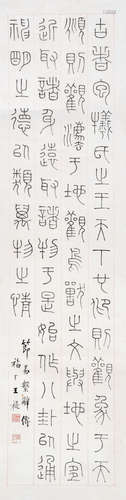 古者包犧氏之王天下也卬則觀象于天
頫則觀灋于地觀鳥獸之文與地之宜
近取諸身遠取諸物于是始作八卦以通
神明之德以類萬物之情
節易繫辭傳
福厂王禔